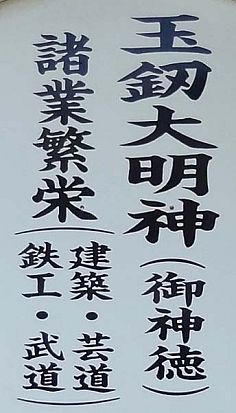 玉釼大明神(御神徳)
諸業繁栄(建築・芸道
鉄工・武道)